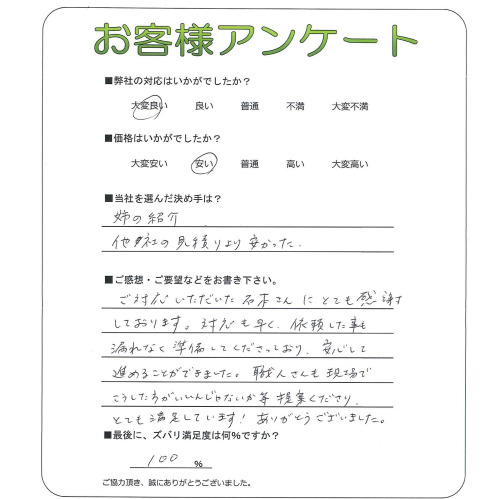 お客様アンケート
■弊社の対応はいかがでしたか？
大変良い 良い 普通 不満 大変不満
■価格はいかがでしたか？
大変安い 安い 普通 高い 大変高い
■当社を選んだ決め手は？
姉の紹介
他社の見積りより安かった.
■ご感想・ご要望などをお書き下さい。
ご対応いただいた石本さんにとても感謝
しております。対応も早く、依頼した事も
漏れなく準備してくださっており、安心して
進めることができました。職人さんも現場で
こうした方がいいんじゃないか等提案くださり、
とても満足しています！ありがとうございました。
■最後に、ズバリ満足度は何％ですか？
100 ％
ご協力頂き、誠にありがとうございました。